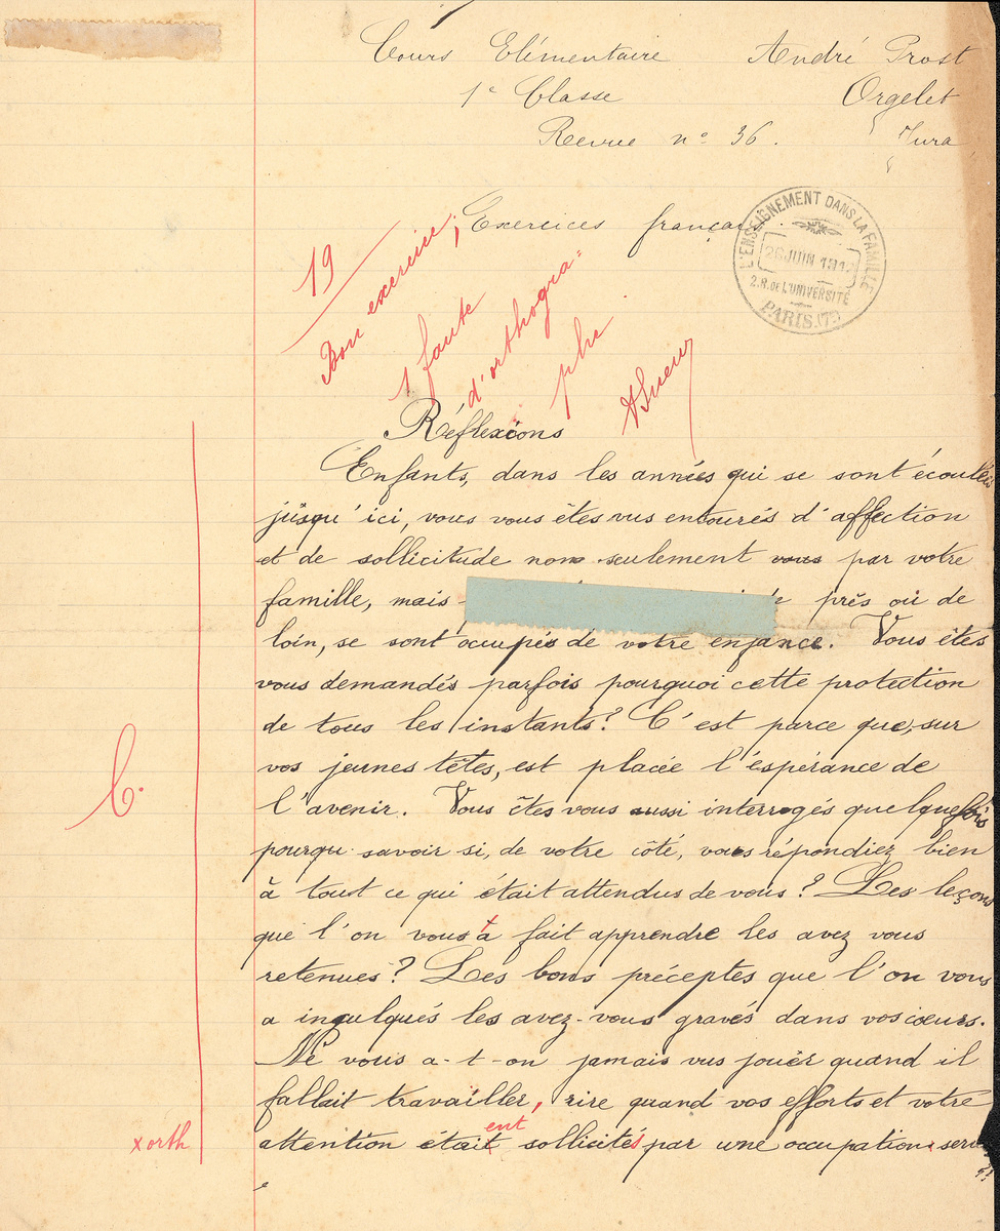 Cours Elémentaire André Prost
1e Classe Orgelet
Revue n° 36. Jura
Exercices français
L'ENSEIGNEMENT DANS LA FAMILLE
26 JUIN 191
2.R. DE L'UNIVERSITÉ
PARIS (7e)
19
Bon exercice;
1 faute
d'orthogra=
phe
Réflexions
Enfants, dans les années qui se sont écoulées
jusqu'ici, vous vous êtes vus entourés d'affection
et de sollicitude non seulement vous par votre
famille, mais près ou de
loin, se sont occupés de votre enfance. Vous êtes
vous demandés parfois pourquoi cette protection
de tous les instants? C'est parce que, sur
vos jeunes têtes, est placée l'éspérance de
l'avenir. Vous êtes vous aussi interrogés quelquefois
pourqu savoir si, de votre côté, vous répondiez bien
à tout ce qui était attendus de vous? Les leçons
que l'on vous à fait apprendre les avez vous
retenues? Les bons préceptes que l'on vous
a inqulqués les avez-vous gravés dans vos cœurs.
Ne vous a-t-on jamais vus jouer quand il
fallait travailler, rire quand vos efforts et votre
ent
x orth attention était sollicités par une occupation
B.